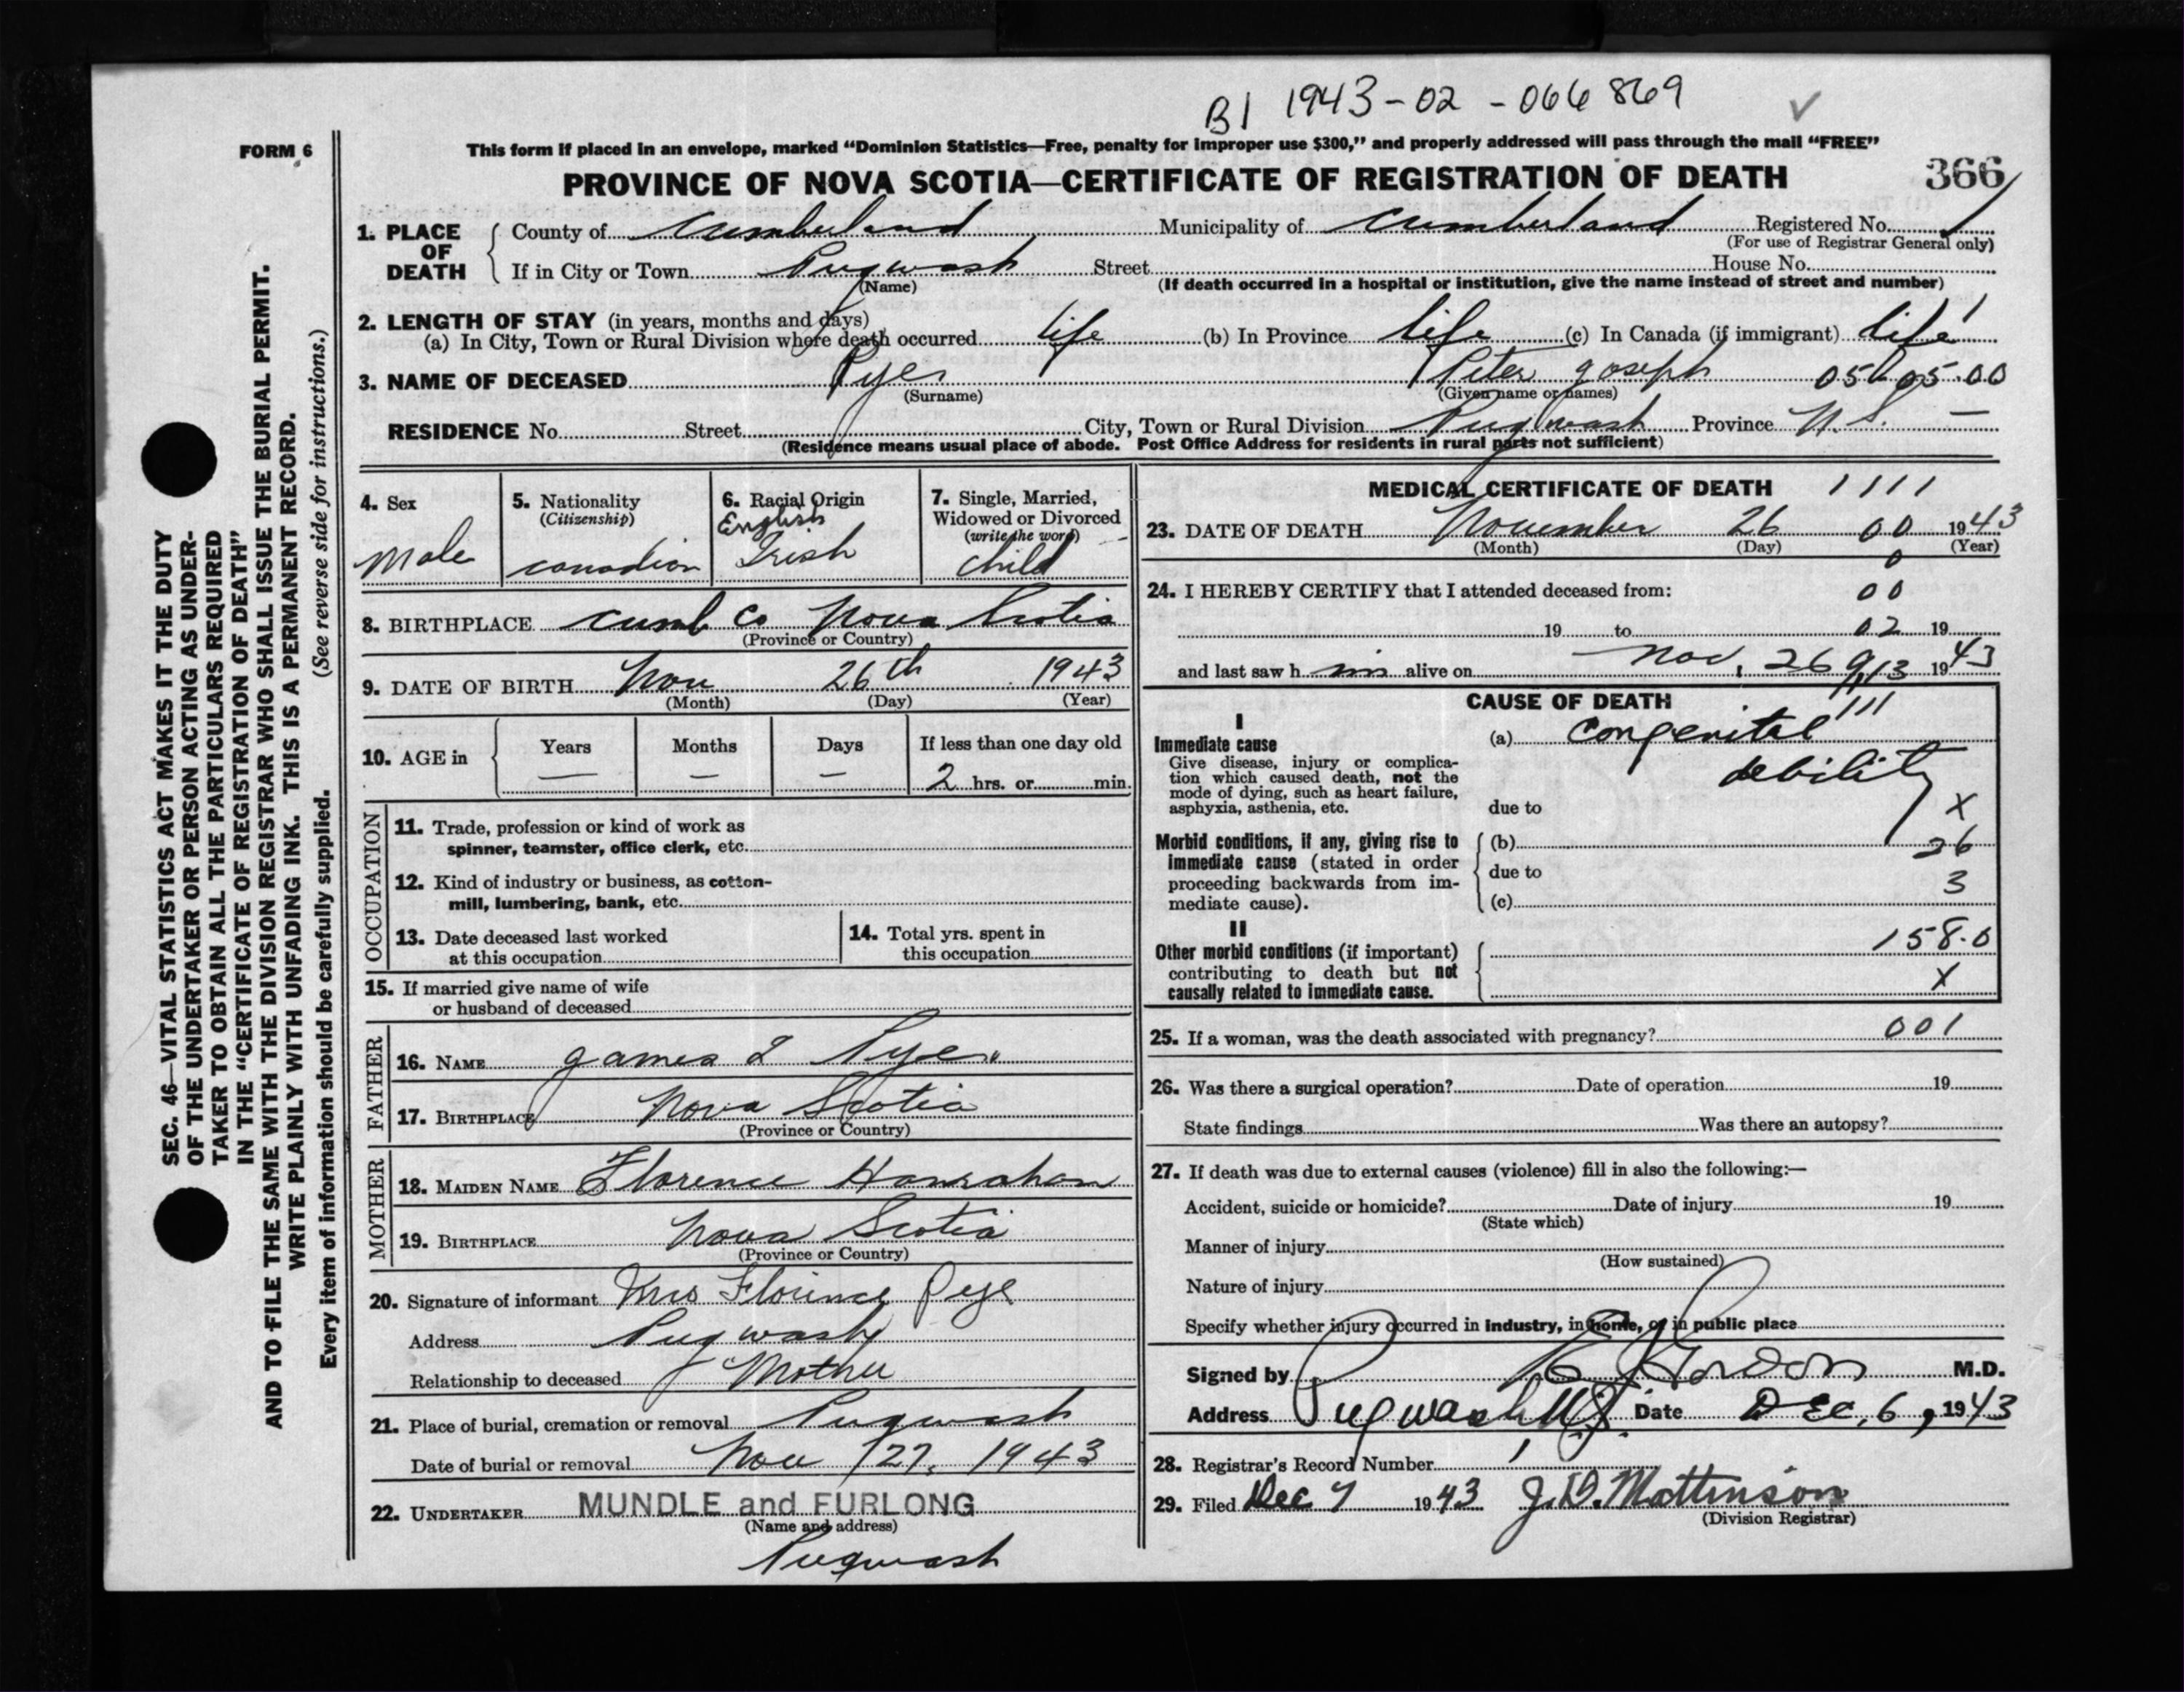 B1 1943-02-066869
FORM 6
This form if placed in an envelope, marked “Dominion Statistics—Free, penalty for improper use $300,” and properly addressed will pass through the mail “FREE”
PROVINCE OF NOVA SCOTIA—CERTIFICATE OF REGISTRATION OF DEATH 366
1. PLACE OF DEATH
County of Cumberland Municipality of Cumberland Registered No.
(For use of Registrar General only)
If in City or Town Pugwash Street House No.
(Name) (If death occurred in a hospital or institution, give the name instead of street and number)
2. LENGTH OF STAY (in years, months and days)
(a) In City, Town or Rural Division where death occurred life (b) In Province life (c) In Canada (if immigrant) life
3. NAME OF DECEASED Pye Peter Joseph 05 05.00
(Surname) (Given name or names)
RESIDENCE No. Street City, Town or Rural Division Pugwash Province N.S. —
(Residence means usual place of abode. Post Office Address for residents in rural parts not sufficient)
4. Sex
Male
5. Nationality
(Citizenship)
canadian
6. Racial Origin
English
Irish
7. Single, Married,
Widowed or Divorced
(write the word)
child
8. BIRTHPLACE Cumb Co Nova Scotia
(Province or Country)
9. DATE OF BIRTH Nov 26th 1943
(Month) (Day) (Year)
10. AGE in
Years Months Days If less than one day old
— — — 2 hrs. or min.
OCCUPATION
11. Trade, profession or kind of work as
spinner, teamster, office clerk, etc.
12. Kind of industry or business, as cotton-
mill, lumbering, bank, etc.
13. Date deceased last worked
at this occupation
14. Total yrs. spent in
this occupation
15. If married give name of wife
or husband of deceased
FATHER
16. NAME James L Pye
17. BIRTHPLACE Nova Scotia
(Province or Country)
MOTHER
18. MAIDEN NAME Florence Hanrahan
19. BIRTHPLACE Nova Scotia
(Province or Country)
20. Signature of informant Mrs Florence Pye
Address Pugwash
Relationship to deceased Mother
21. Place of burial, cremation or removal Pugwash
Date of burial or removal Nov 27, 1943
22. UNDERTAKER MUNDLE and FURLONG
(Name and address)
Pugwash
MEDICAL CERTIFICATE OF DEATH 1111
23. DATE OF DEATH November 26 00 1943
(Month) (Day) (Year)
0
24. I HEREBY CERTIFY that I attended deceased from: 00
19 to 02 19
and last saw h im alive on Nov. 26 1943
CAUSE OF DEATH
I
Immediate cause
Give disease, injury or complica-
tion which caused death, not the
mode of dying, such as heart failure,
asphyxia, asthenia, etc.
(a) Congenital 111
debility
due to X
Morbid conditions, if any, giving rise to
immediate cause (stated in order
proceeding backwards from im-
mediate cause).
(b) 26
due to
3
(c)
II
Other morbid conditions (if important)
contributing to death but not
causally related to immediate cause.
158.0
X
25. If a woman, was the death associated with pregnancy? 001
26. Was there a surgical operation? Date of operation 19
State findings Was there an autopsy?
27. If death was due to external causes (violence) fill in also the following:—
Accident, suicide or homicide? Date of injury 19
(State which)
Manner of injury
(How sustained)
Nature of injury
Specify whether injury occurred in industry, in home, or in public place
Signed by Gordon M.D.
Address Pugwash N.S. Date Dec. 6, 1943
28. Registrar's Record Number
29. Filed Dec 7 1943 J.D. Mattinson
(Division Registrar)
SEC. 46—VITAL STATISTICS ACT MAKES IT THE DUTY
OF THE UNDERTAKER OR PERSON ACTING AS UNDER-
TAKER TO OBTAIN ALL THE PARTICULARS REQUIRED
IN THE “CERTIFICATE OF REGISTRATION OF DEATH”
AND TO FILE THE SAME WITH THE DIVISION REGISTRAR WHO SHALL ISSUE THE BURIAL PERMIT.
WRITE PLAINLY WITH UNFADING INK. THIS IS A PERMANENT RECORD.
Every item of information should be carefully supplied. (See reverse side for instructions.)